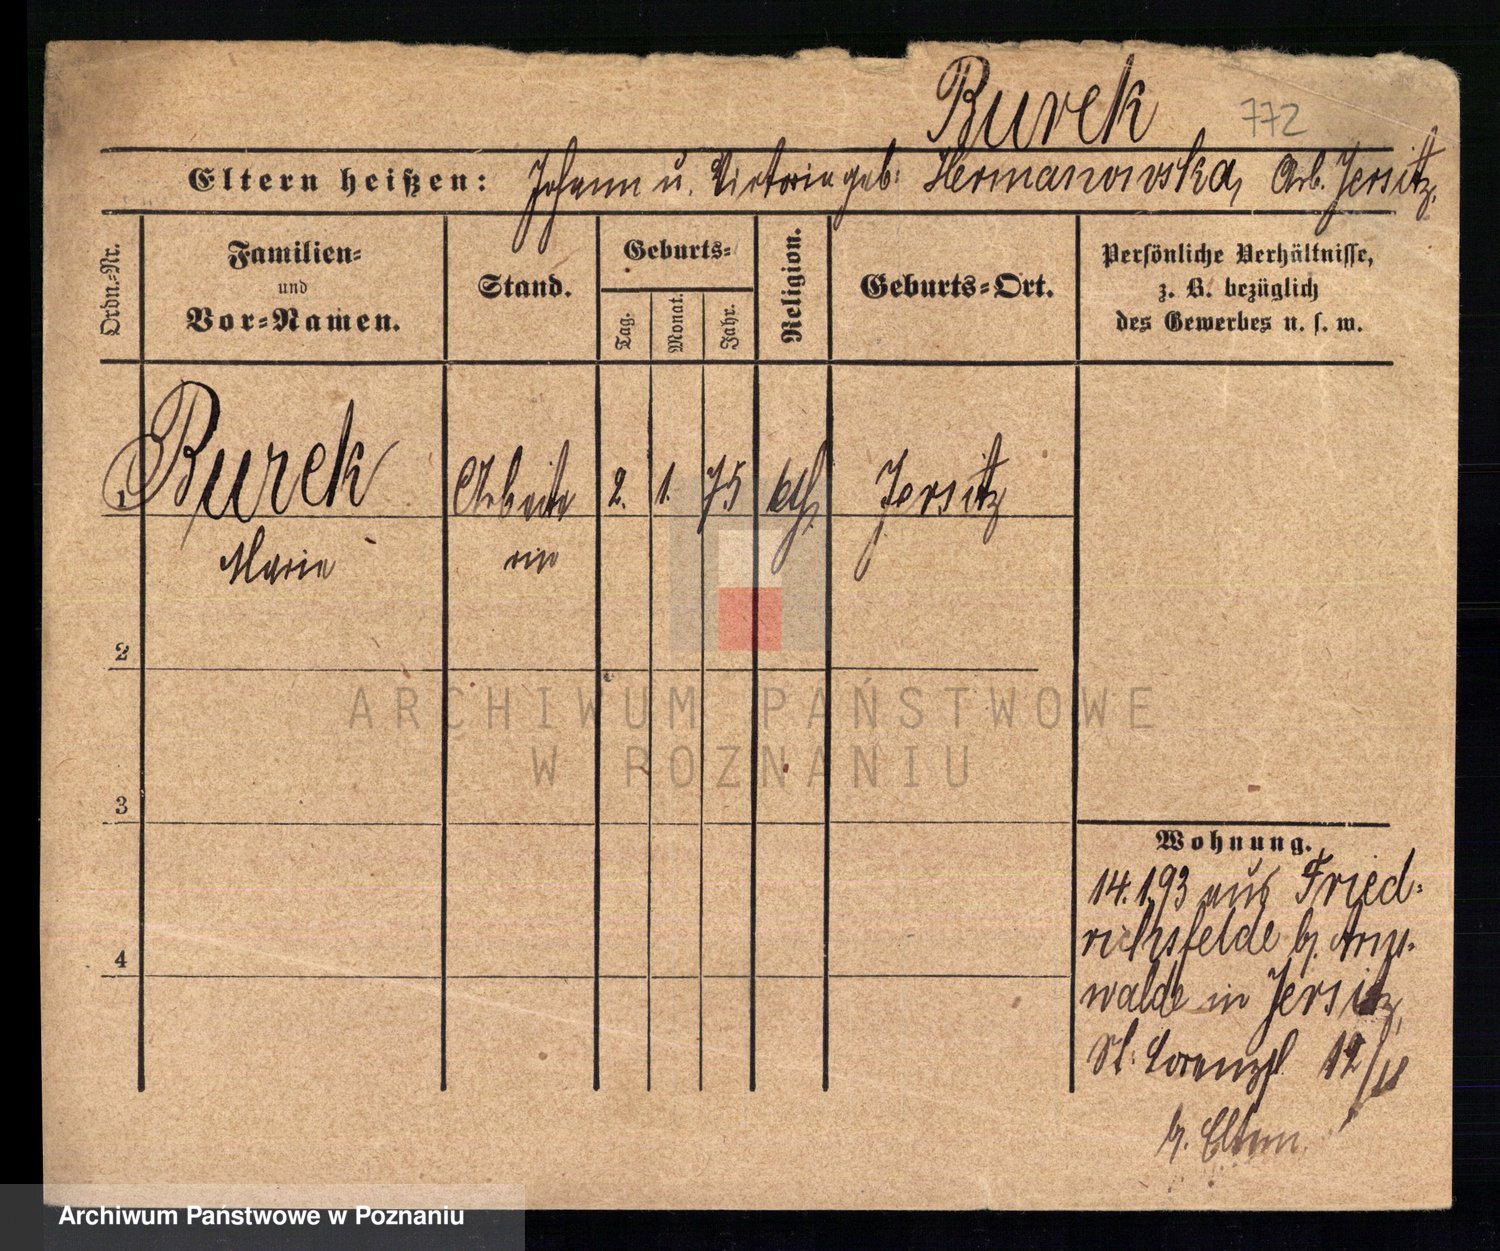 Burek 772
Eltern heißen: Johann u. Victoria geb: Hermanowska, Arb. Jersitz.
Ordn.-Nr.
Familien-
und
Vor-Namen.
Stand.
Geburts-
Tag.
Monat.
Jahr.
Religion.
Geburts-Ort.
Persönliche Verhältnisse,
z. B. bezüglich
des Gewerbes u. s. w.
1 Burek Arbeite 2. 1. 75 kth. Jersitz
Marie rin
2
3
4
Wohnung.
14.1.93 aus Fried-
richsfelde b. Arns-
walde in Jersitz,
St: Lorenzstr 12/
b. Eltern
ARCHIWUM PAŃSTWOWE
W POZNANIU
Archiwum Państwowe w Poznaniu